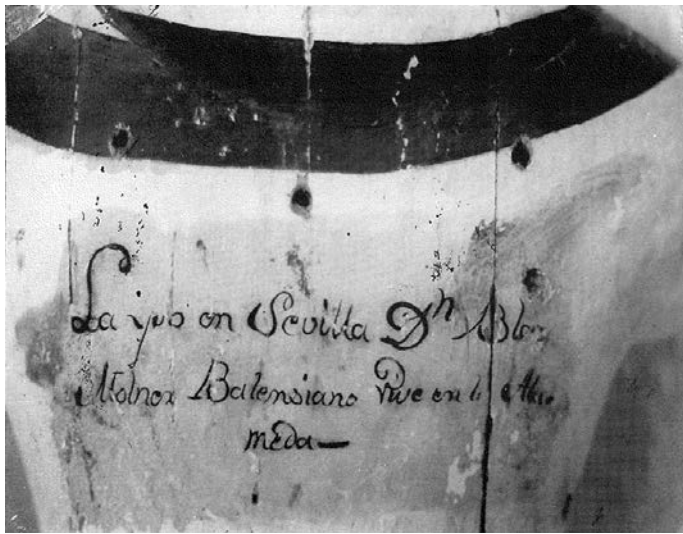 La yso en Sevilla Dn Blas
Molner Balensiano Vive en la Ala
meda